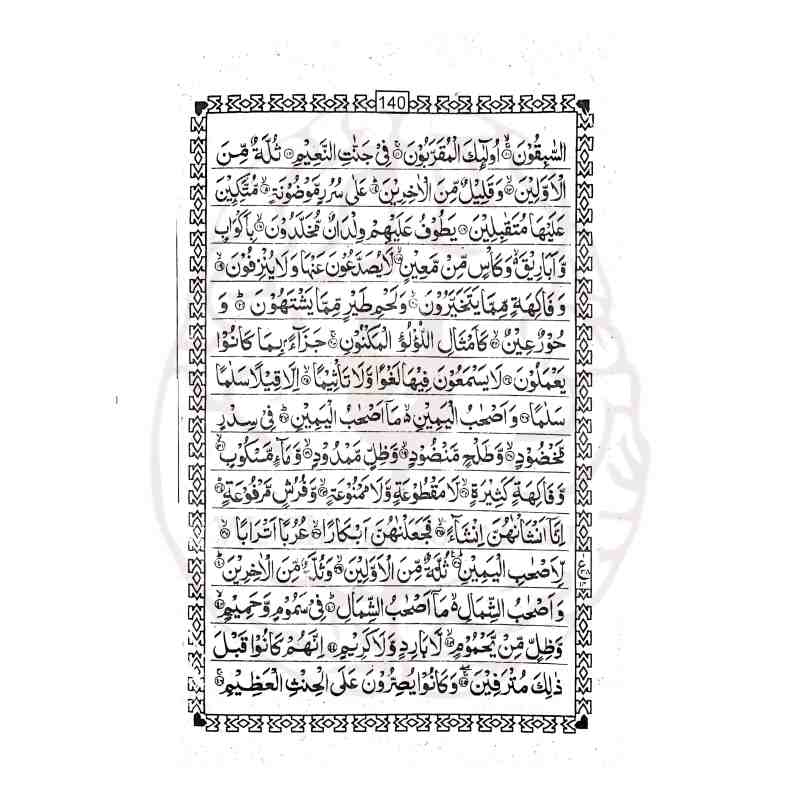 140
السّٰبِقُوْنَ ۙ۝۱۰ اُولٰٓئِكَ الْمُقَرَّبُوْنَ ۚ۝۱۱ فِیْ جَنّٰتِ النَّعِیْمِ ۝۱۲ ثُلَّةٌ مِّنَ
الْاَوَّلِیْنَ ۙ۝۱۳ وَقَلِیْلٌ مِّنَ الْاٰخِرِیْنَ ؕ۝۱۴ عَلٰی سُرُرٍ مَّوْضُوْنَةٍ ۙ۝۱۵ مُّتَّكِـِٕیْنَ
عَلَیْهَا مُتَقٰبِلِیْنَ ۝۱۶ یَطُوْفُ عَلَیْهِمْ وِلْدَانٌ مُّخَلَّدُوْنَ ۙ۝۱۷ بِاَكْوَابٍ
وَّاَبَارِیْقَ ۙ۬ وَكَاْسٍ مِّنْ مَّعِیْنٍ ۙ۝۱۸ لَّا یُصَدَّعُوْنَ عَنْهَا وَلَا یُنْزِفُوْنَ ۙ۝۱۹
وَفَاكِهَةٍ مِّمَّا یَتَخَیَّرُوْنَ ۙ۝۲۰ وَلَحْمِ طَیْرٍ مِّمَّا یَشْتَهُوْنَ ؕ۝۲۱ وَ
حُوْرٌ عِیْنٌ ۙ۝۲۲ كَاَمْثَالِ اللُّؤْلُؤِ الْمَكْنُوْنِ ۚ۝۲۳ جَزَآءًۢ بِمَا كَانُوْا
یَعْمَلُوْنَ ۝۲۴ لَا یَسْمَعُوْنَ فِیْهَا لَغْوًا وَّلَا تَاْثِیْمًا ۙ۝۲۵ اِلَّا قِیْلًا سَلٰمًا
سَلٰمًا ۝۲۶ وَاَصْحٰبُ الْیَمِیْنِ ۙ۬ مَاۤ اَصْحٰبُ الْیَمِیْنِ ؕ۝۲۷ فِیْ سِدْرٍ
مَّخْضُوْدٍ ۙ۝۲۸ وَّطَلْحٍ مَّنْضُوْدٍ ۙ۝۲۹ وَّظِلٍّ مَّمْدُوْدٍ ۙ۝۳۰ وَّمَآءٍ مَّسْكُوْبٍ ۙ۝۳۱
وَّفَاكِهَةٍ كَثِیْرَةٍ ۙ۝۳۲ لَّا مَقْطُوْعَةٍ وَّلَا مَمْنُوْعَةٍ ۙ۝۳۳ وَّفُرُشٍ مَّرْفُوْعَةٍ ؕ۝۳۴
اِنَّاۤ اَنْشَاْنٰهُنَّ اِنْشَآءً ۙ۝۳۵ فَجَعَلْنٰهُنَّ اَبْكَارًا ۙ۝۳۶ عُرُبًا اَتْرَابًا ۙ۝۳۷
لِّاَصْحٰبِ الْیَمِیْنِ ؕ۝۳۸ ثُلَّةٌ مِّنَ الْاَوَّلِیْنَ ۙ۝۳۹ وَثُلَّةٌ مِّنَ الْاٰخِرِیْنَ ؕ۝۴۰
وَاَصْحٰبُ الشِّمَالِ ۙ۬ مَاۤ اَصْحٰبُ الشِّمَالِ ؕ۝۴۱ فِیْ سَمُوْمٍ وَّحَمِیْمٍ ۙ۝۴۲
وَّظِلٍّ مِّنْ یَّحْمُوْمٍ ۙ۝۴۳ لَّا بَارِدٍ وَّلَا كَرِیْمٍ ۝۴۴ اِنَّهُمْ كَانُوْا قَبْلَ
ذٰلِكَ مُتْرَفِیْنَ ۚۖ۝۴۵ وَكَانُوْا یُصِرُّوْنَ عَلَی الْحِنْثِ الْعَظِیْمِ ۚ۝۴۶